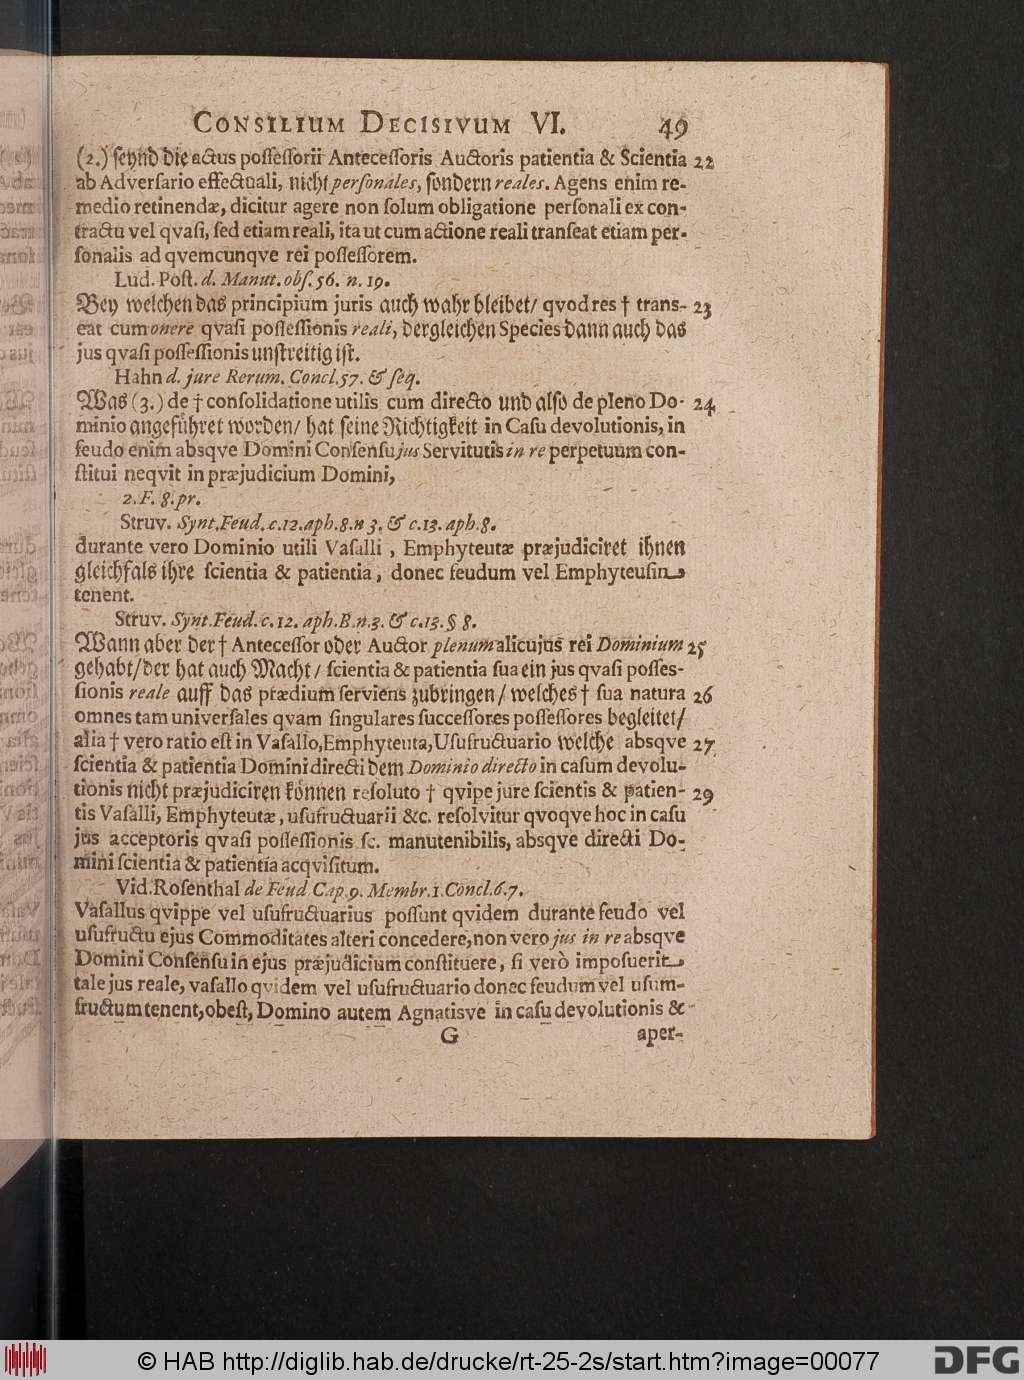 CONSILIUM DECISIVUM VI. 49
(2.) ſeynd die actus poſſeſſorii Anteceſſoris Auctoris patientia & Scientia 22
ab Adverſario effectuali, nicht perſonales, ſondern reales. Agens enim re-
medio retinendæ, dicitur agere non ſolum obligatione perſonali ex con-
tractu vel qvaſi, ſed etiam reali, ita ut cum actione reali tranſeat etiam per-
ſonalis ad qvemcunqve rei poſſeſſorem.
Lud. Poſt. d. Manut. obſ. 56. n. 19.
Bey welchen das principium juris auch wahr bleibet/ qvod res † trans- 23
eat cum onere qvaſi poſſeſſionis reali, dergleichen Species dann auch das
jus qvaſi poſſeſſionis unſtreitig iſt.
Hahn d. jure Rerum. Concl. 57. & ſeq.
Was (3.) de † conſolidatione utilis cum directo und alſo de pleno Do- 24
minio angeführet worden/ hat ſeine Richtigkeit in Caſu devolutionis, in
feudo enim absqve Domini Conſenſu jus Servitutis in re perpetuum con-
ſtitui neqvit in præjudicium Domini,
2. F. 8. pr.
Struv. Synt. Feud. c. 12. aph. 8. n 3. & c. 13. aph. 8.
durante vero Dominio utili Vaſalli, Emphyteutæ præjudiciret ihnen
gleichfals ihre ſcientia & patientia, donec feudum vel Emphyteuſin
tenent.
Struv. Synt. Feud. c. 12. aph. B. n. 3. & c. 13. § 8.
Wann aber der † Anteceſſor oder Auctor plenum alicujus rei Dominium 25
gehabt/ der hat auch Macht/ ſcientia & patientia ſua ein jus qvaſi poſſes-
ſionis reale auff das prædium ſerviens zubringen/ welches † ſua natura 26
omnes tam univerſales qvam ſingulares ſucceſſores poſſeſſores begleitet/
alia † vero ratio eſt in Vaſallo, Emphyteuta, Uſufructuario welche absqve 27
ſcientia & patientia Domini directi dem Dominio directo in caſum devolu-
tionis nicht præjudiciren können reſoluto † qvipe jure ſcientis & patien- 29
tis Vaſalli, Emphyteutæ, uſufructuarii &c. reſolvitur qvoqve hoc in caſu
jus acceptoris qvaſi poſſeſſionis ſc. manutenibilis, absqve directi Do-
mini ſcientia & patientia acqviſitum.
Vid. Roſenthal de Feud Cap. 9. Membr. 1. Concl. 6. 7.
Vaſallus qvippe vel uſufructuarius poſſunt qvidem durante feudo vel
uſufructu ejus Commoditates alteri concedere, non vero jus in re absqve
Domini Conſenſu in ejus præjudicium conſtituere, ſi verò impoſuerit
tale jus reale, vaſallo qvidem vel uſufructuario donec feudum vel uſum-
fructum tenent, obeſt, Domino autem Agnatisve in caſu devolutionis &
G aper-
© HAB http://diglib.hab.de/drucke/rt-25-2s/start.htm?image=00077
DFG